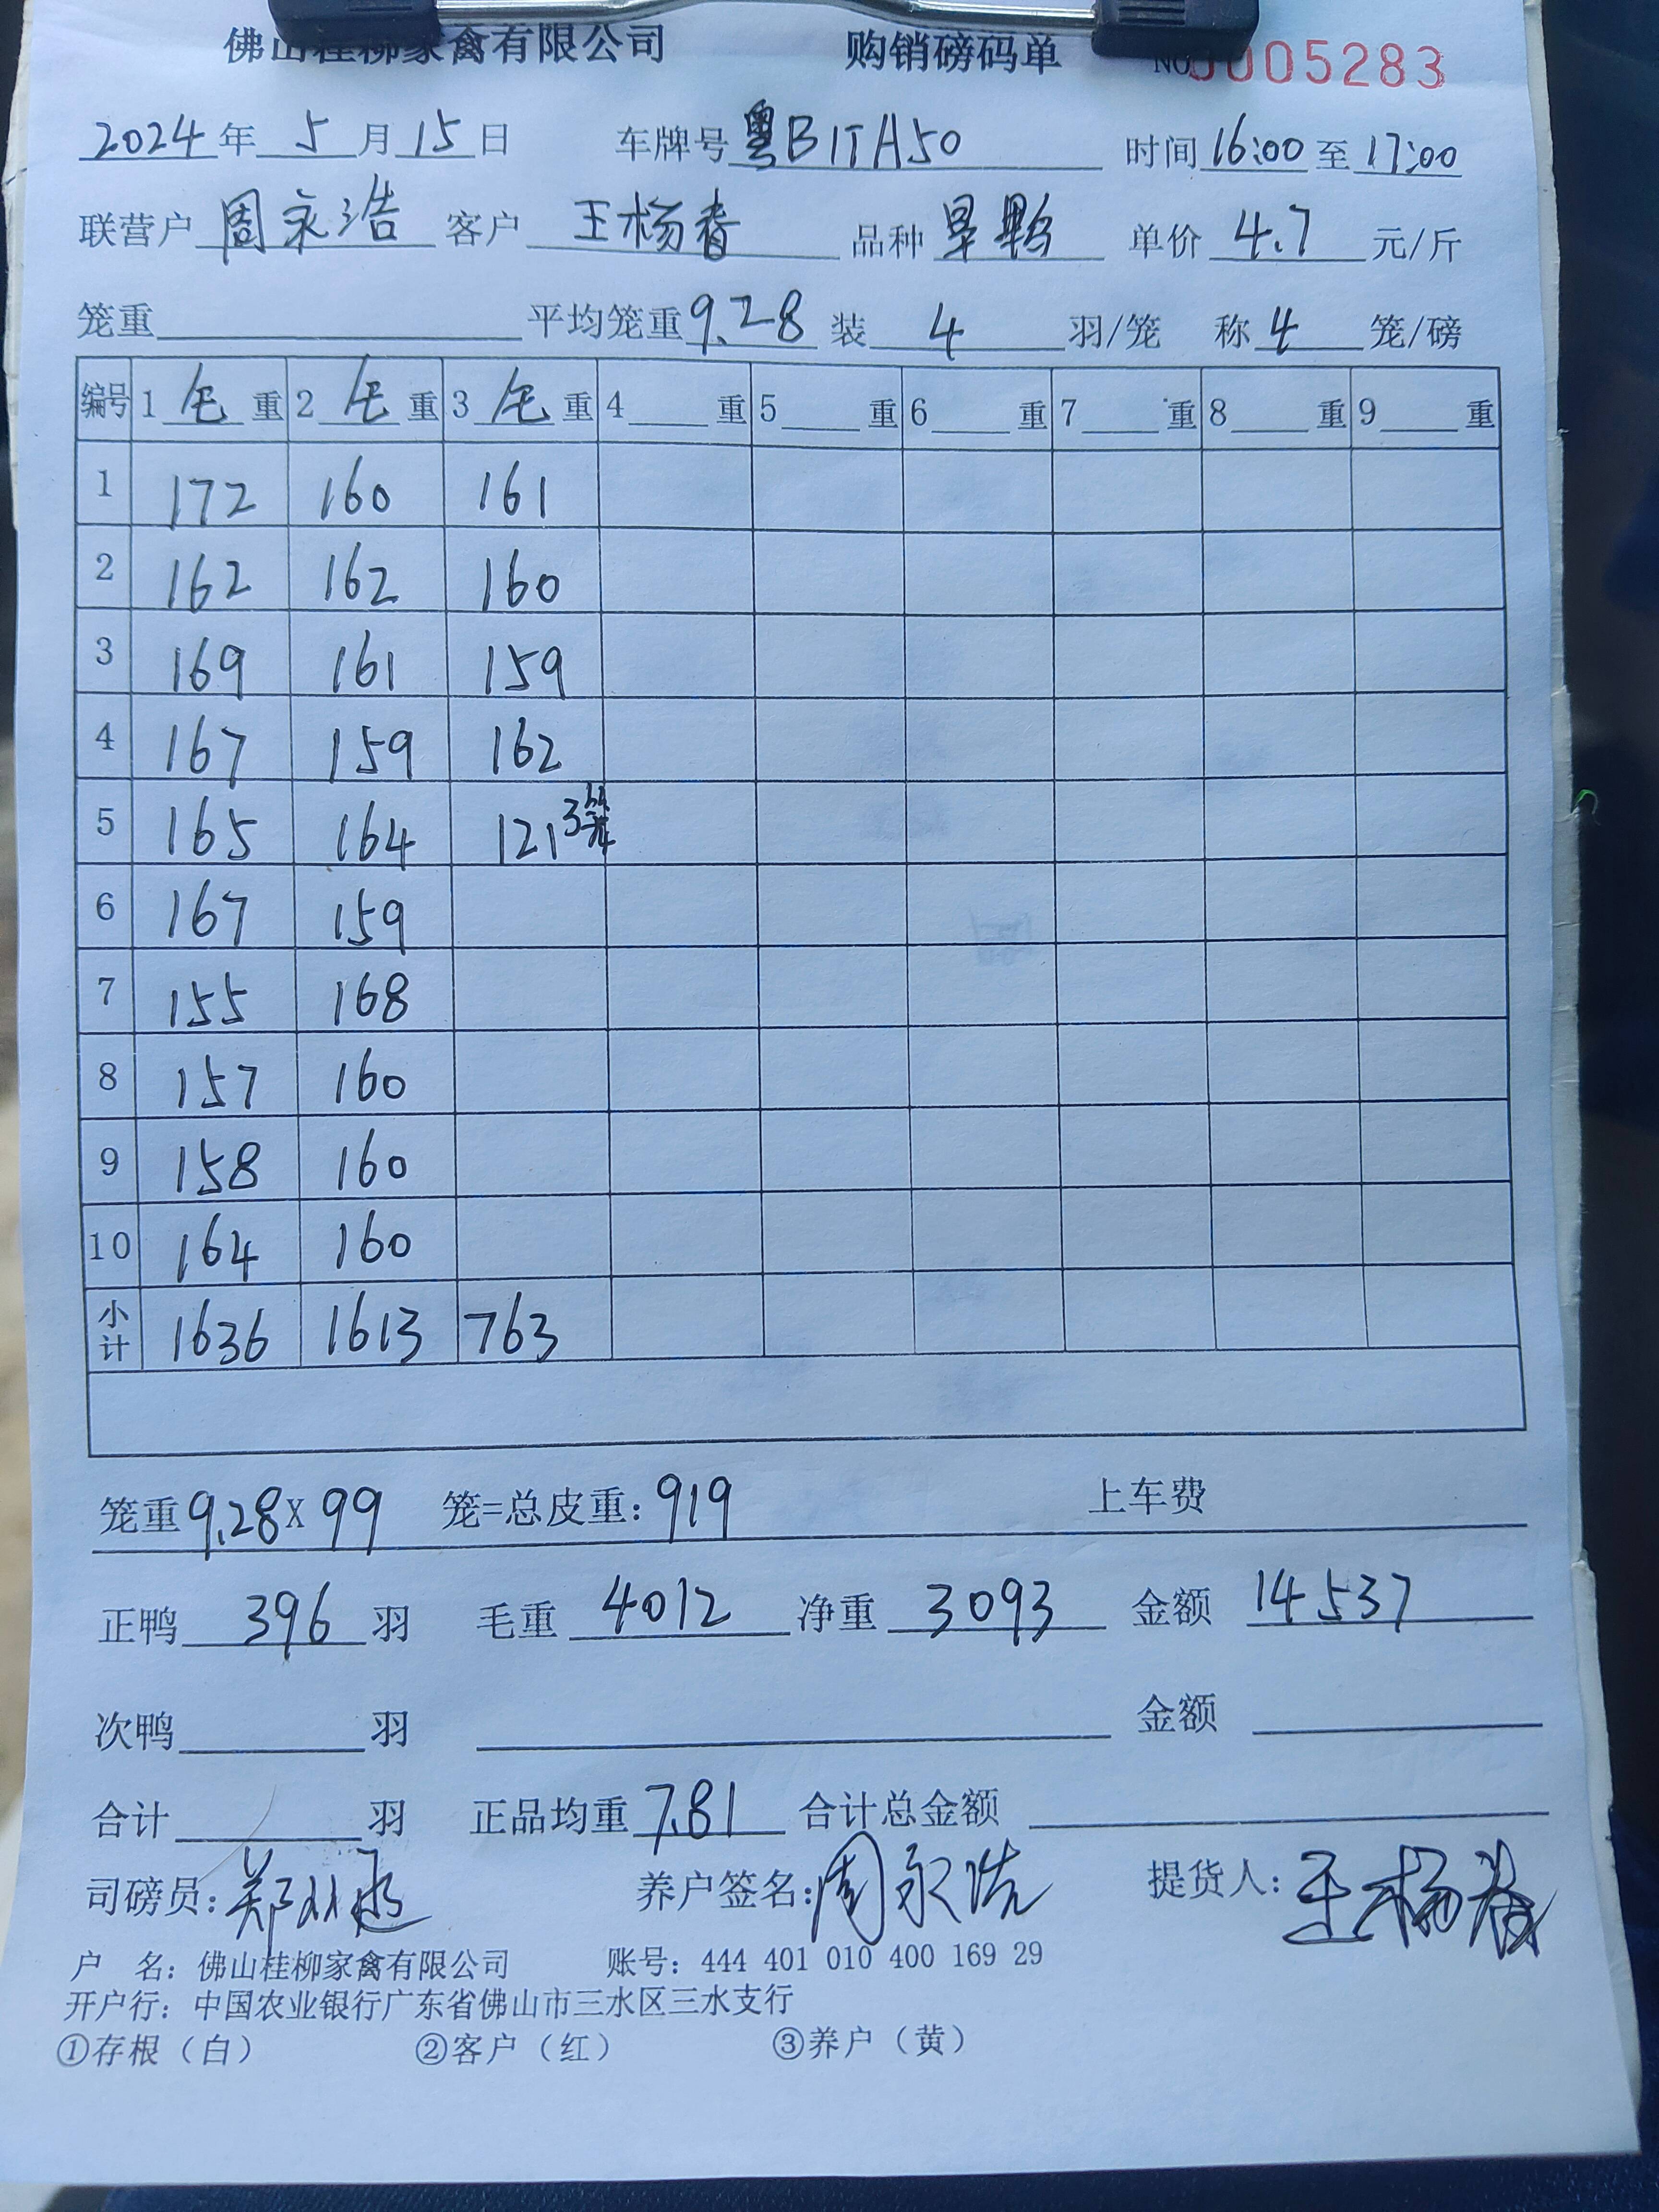 佛山桂柳家禽有限公司 购销磅码单 NO 0005283
2024年 5 月 15 日 车牌号 粤B1TA50 时间 16:00 至 17:00
联营户 周永浩 客户 王杨春 品种 单价 4.7 元/斤
笼重 平均笼重 9.28 装 4 羽/笼 称 4 笼/磅
编号 1 毛 重 2 毛 重 3 毛 重 4 重 5 重 6 重 7 重 8 重 9 重
1 172 160 161
2 162 162 160
3 169 161 159
4 167 159 162
5 165 164 121 3笼
6 167 159
7 155 168
8 157 160
9 158 160
10 164 160
小计 1636 1613 763
笼重 9.28 X 99 笼=总皮重: 919 上车费
正鸭 396 羽 毛重 4012 净重 3093 金额 14537
次鸭 羽 金额
合计 羽 正品均重 7.81 合计总金额
司磅员: 郑 养户签名: 周永浩 提货人: 王杨春
户 名: 佛山桂柳家禽有限公司 账号: 444 401 010 400 169 29
开户行: 中国农业银行广东省佛山市三水区三水支行
①存根（白） ②客户（红） ③养户（黄）